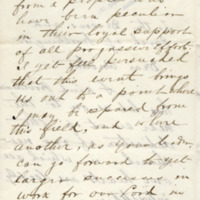 from a people who
have been peculiar
in their loyal support
of all progressive effort.
I yet feel persuaded
that this event brings
us out to a point where
I may be spared from
this field, and where
another, as your leader,
can go forward to yet
larger success in
work for our Lord in